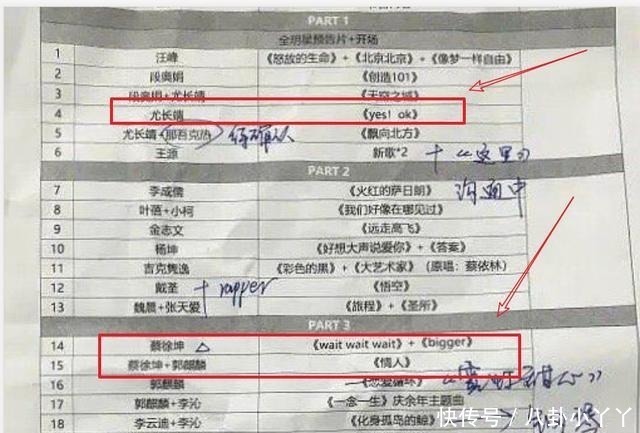 PART 1
全明星预告片+开场
1 汪峰 《怒放的生命》+《北京北京》+《像梦一样自由》
2 段奥娟 《创造101》
3 段奥娟+尤长靖 《天空之城》
4 尤长靖 《yes! ok》
5 尤长靖+那吾克热 待确认 《飘向北方》
6 王源 新歌*2 +《这里》
PART 2
7 李成儒 《火红的萨日朗》 沟通中
8 叶蓓+小柯 《我们好像在哪见过》
9 金志文 《远走高飞》
10 杨坤 《好想大声说爱你》+《答案》
11 吉克隽逸 《彩色的黑》+《大艺术家》(原唱:蔡依林)
12 戴荃 + rapper 《悟空》
13 魏晨+张天爱 《旅程》+《圣所》
PART 3
14 蔡徐坤 △ 《wait wait wait》+《bigger》
15 蔡徐坤+郭麒麟 《情人》
16 郭麒麟 《恋爱循环》
17 郭麒麟+李沁 《一念一生》庆余年主题曲
18 李云迪+李沁 《化身孤岛的鲸》
快传号/八卦小丫丫